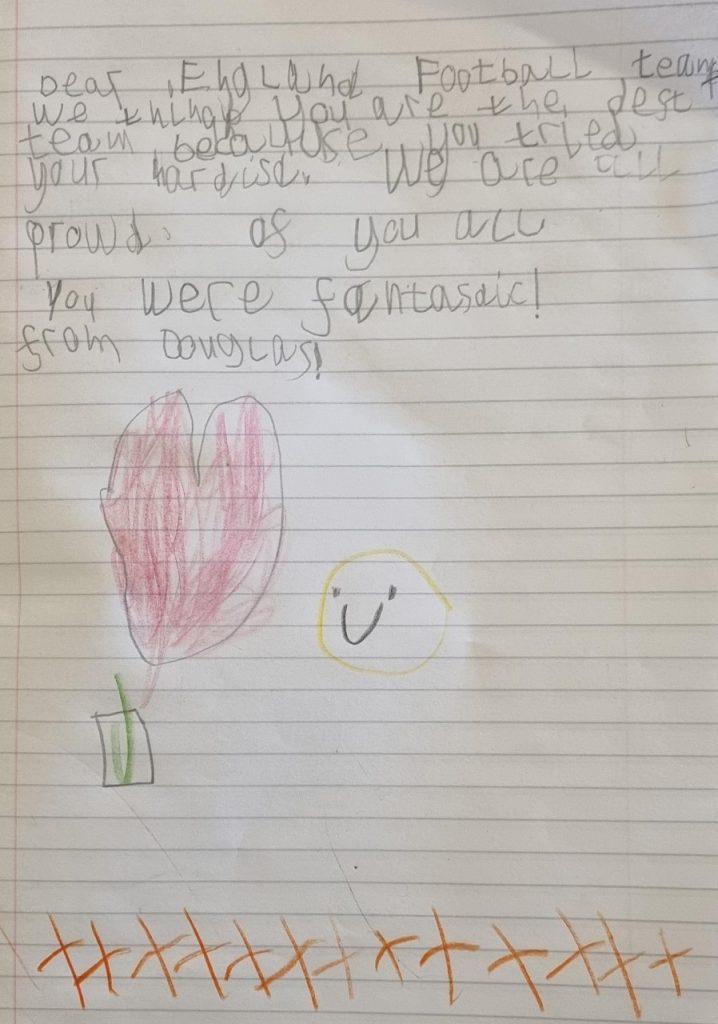 Dear England Football team
we think you are the dest
team becauyse you tried
your hardisd. We are all
proud. of you all
you were fantasdic!
from Douglas!